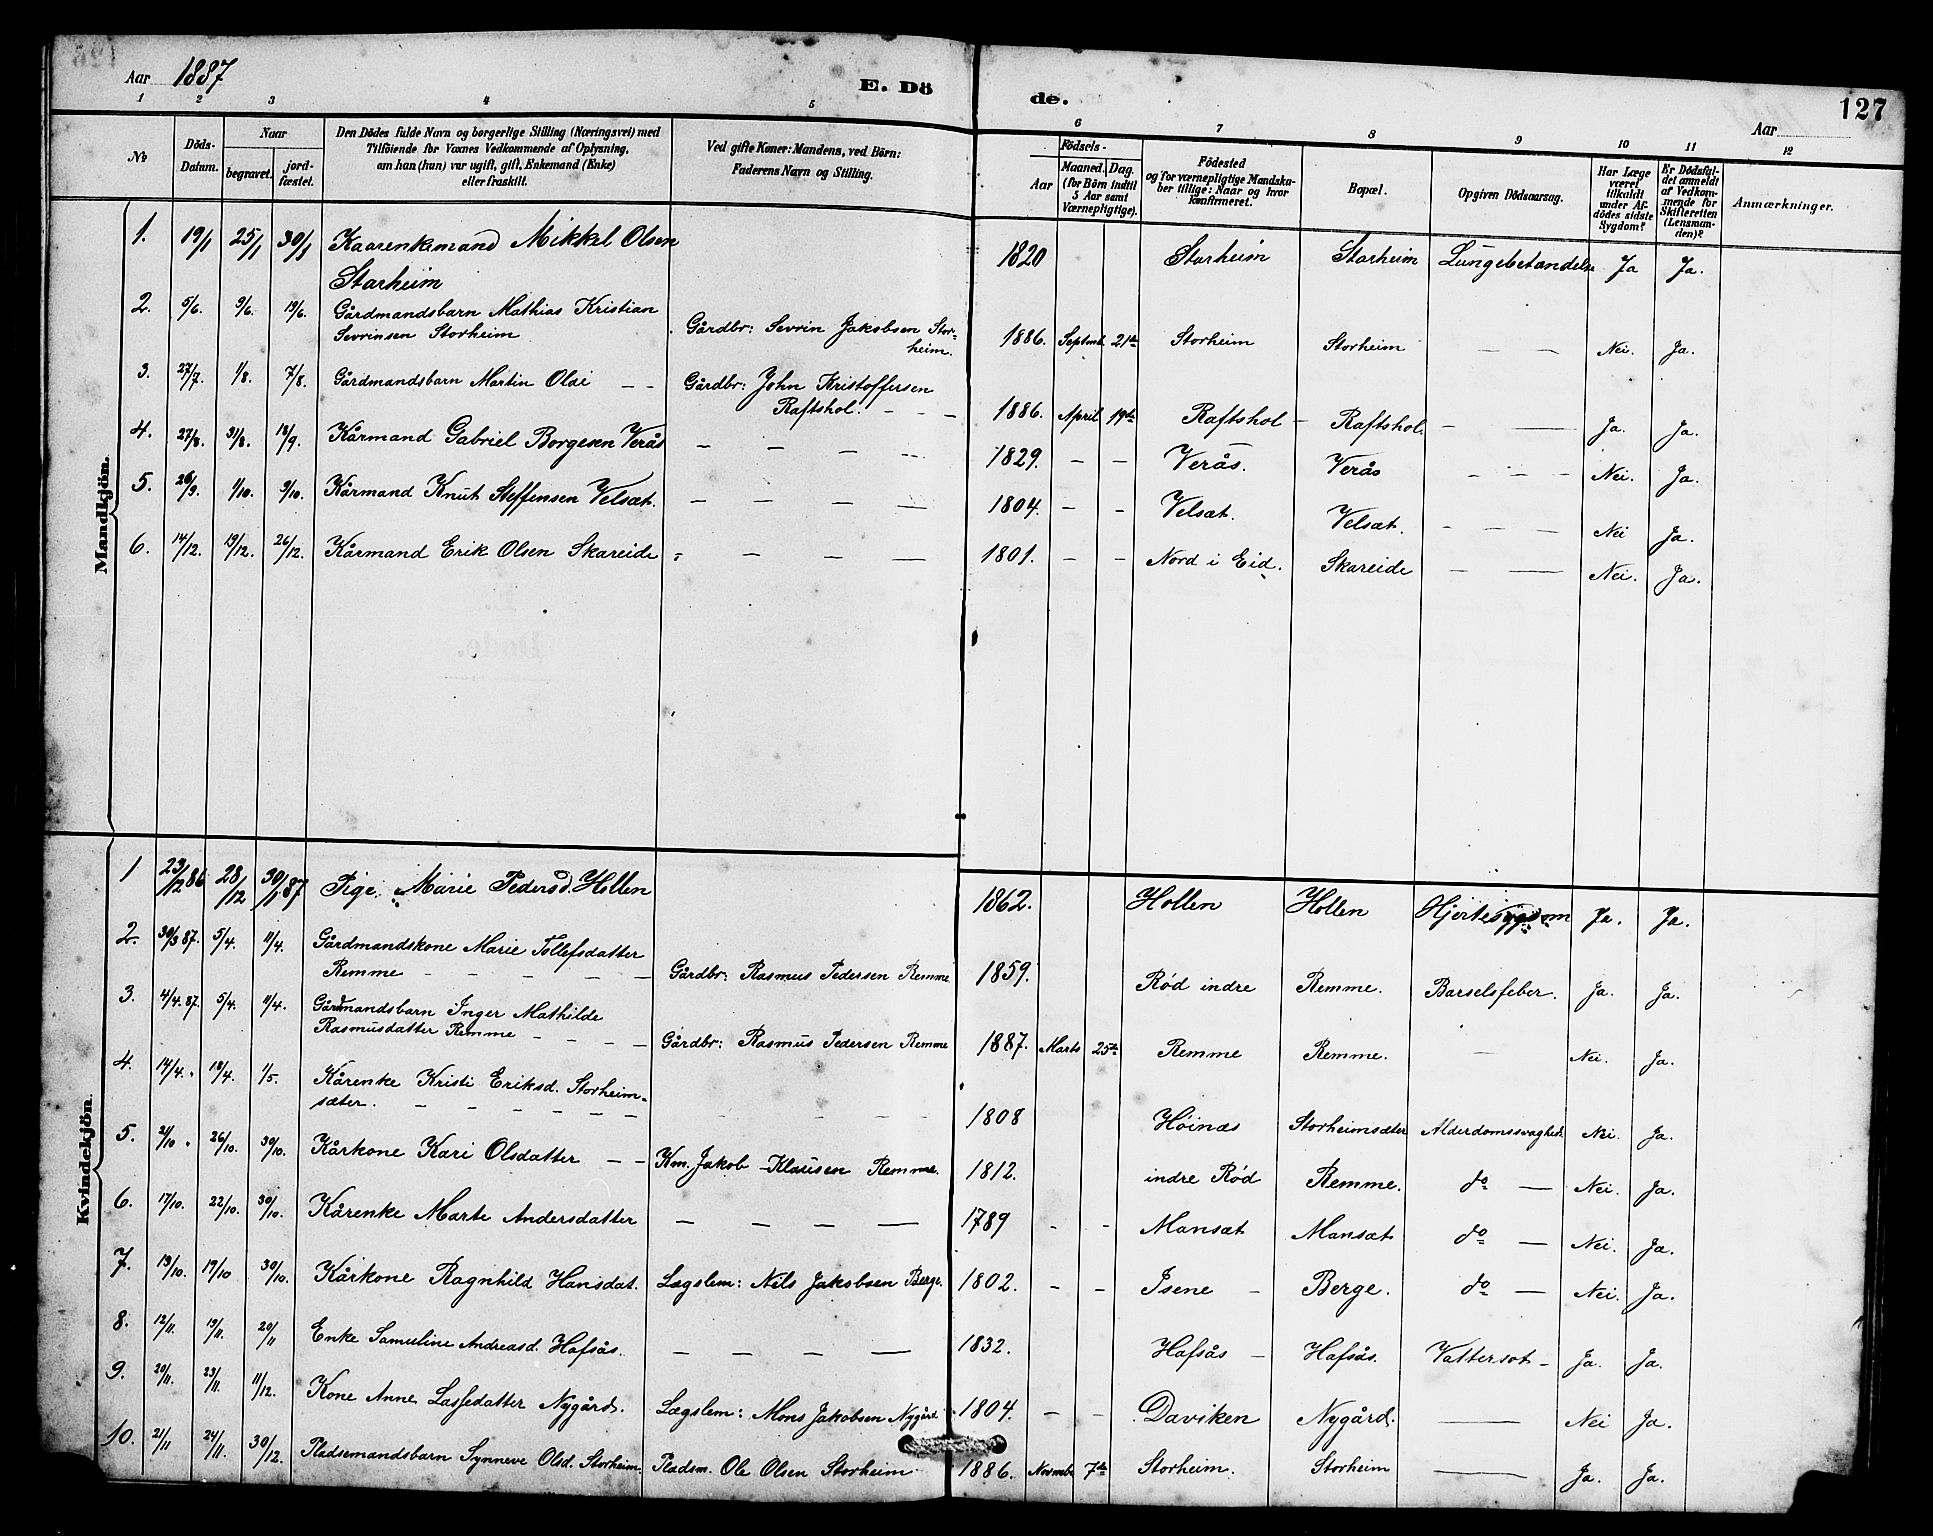 Aar 1887 E. Dö de. Aar 127
1 2 3 4 5 6 7 8 9 10 11 12
No
Döds-Datum.
Naar
begravet.
jord-fæstet.
Den Dödes fulde Navn og borgerlige Stilling (Næringsvei) med
Tilföiende for Voxnes Vedkommende af Oplysning,
om han (hun) var ugift, gift, Enkemand (Enke)
eller fraskilt.
Ved gifte Koner: Mandens, ved Börn:
Faderens Navn og Stilling.
Födsels-
Aar
Maaned. Dag.
(for Börn indtil
5 Aar samt
Værnepligtige).
Födested
og for værnepligtige Mandska-
ber tillige: Naar og hvor
konfirmeret.
Bopæl.
Opgiven Dödsaarsag.
Har Læge
været
tilkaldt
under Af-
dödes sidste
Sygdom?
Er Dödsfal-
det anmeldt
af Vedkom-
mende for
Skifteretten
(Lensman-
den)?
Anmærkninger.
Mandkjön.
1. 19/1 25/1 30/1 Kaarenkemand Mikkel Olsen 1820 Starheim Starheim Lungebetændelse Ja Ja.
Starheim
2. 5/6. 9/6. 19/6. Gårdmandsbarn Mathias Kristian
Sevrinsen Storheim Gårdbr: Sevrin Jakobsen Stor- 1886. Septmb. 21de Storheim Storheim — — Nei. Ja.
heim.
3. 27/7. 1/8. 7/8. Gårdmandsbarn Martin Oldi — — Gårdbr: John Kristoffersen
Raftshol. — — — 1886. April 19de Raftshol — Raftshol. — — Ja. Ja.
4. 27/8. 31/8. 18/9. Kårmand Gabriel Borgesen Verås — — — — 1829. — — Verås. Verås — — — Nei. Ja.
5. 26/9. 1/10. 9/10. Kårmand Knut Steffensen Velsæt. — — — — 1804. — — Velsæt. Velsæt. — — — Nei Ja.
6. 14/12. 19/12. 26/12. Kårmand Erik Olsen Skareide — — — 1801. — — Nord i Eid. Skareide — — Nei. Ja.
Kvindekjön.
1 23/12 86 28/12 30/1 87 Pige Marie Pedersd. Hollen 1862. Hollen Hollen Hjertesygdom Ja. Ja.
2. 30/3 87. 5/4. 11/4. Gårdmandskone Marie Tollefsdatter
Remme — — — — — Gårdbr: Rasmus Pedersen Remme 1859. Rød indre Remme. Barselsfeber. Ja. Ja.
3. 4/4. 87. 5/4. 11/4. Gårdmandsbarn Inger Mathilde
Rasmusdatter Remme — — — — Gårdbr: Rasmus Pedersen Remme 1887. Marts 25de Remme Remme. — Nei. Ja.
4. 14/4. 18/4. 1/5. Kårenke Kristi Eriksd. Storheim-
sæter. — — — — — — — — — — 1808 Høinæs Storheimsæter Alderdomssvaghed. Nei. Ja.
5. 2/10. 26/10. 30/10. Kårkone Kari Olsdatter — — Km. Jakob Klausen Remme. 1812. indre Rød Remme. do — Nei. Ja.
6. 17/10. 22/10. 30/10. Kårenke Marte Andersdatter — — — — 1789 - - Mansæt Mansæt do — Nei. Ja.
7. 13/10. 17/10 30/10. Kårkone Ragnhild Hansdat. Lægslem: Nils Jakobsen Berge. 1802. — — Isene — Berge. do — Nei. Ja.
8. 12/11. 19/11. 20/11 Enke Samuline Andreasd. Hafsås. — — — — 1832. Hafsås — Hafsås. Vattersot — Ja. Ja.
9. 20/11. 23/11. 11/12. Kone Anne Lassedatter Nygård. Lægslem: Mons Jakobsen Nygård 1804. — — Daviken Nygård. — Nei Ja.
10. 21/11 24/11. 30/12. Pladsemandsbarn Synneve Olsd. Storheim. Pladsm. Ole Olsen Storheim 1886. Novembr 7de Storheim. Storheim — Ja. Ja.